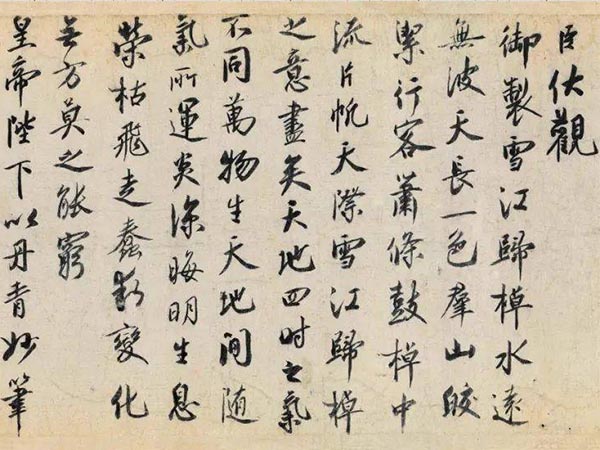 臣伏觀
御製雪江歸棹水遠
無波天長一色羣山皎
潔行客蕭條鼓棹中
流片帆天際雪江歸棹
之意盡矣天地四時之氣
不同萬物生天地間随
氣所運炎涼晦明生息
榮枯飛走蠢動變化
無方莫之能窮
皇帝陛下以丹青妙筆